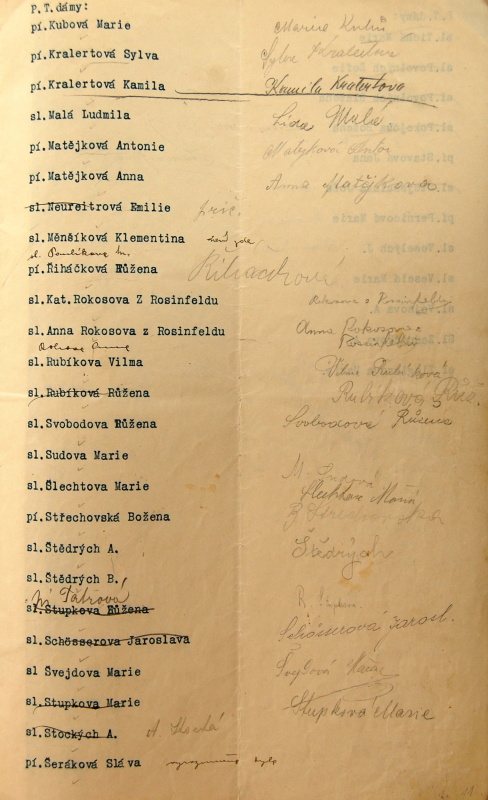 P.T.dámy:
pí.Kubová Marie Marie
pí.Kralertová Sylva Sylva Kralertova
pí.Kralertová Kamila Kamila Kralertova
sl.Malá Ludmila Lida Malá
pí.Matějková Antonie Matějková
pí.Matějková Anna Anna Matějková
sl.Neureitrová Emilie
sl.Měnšíková Klementina
sl.
pí.Řiháčková Růžena Řiháčková
sl.Kat.Rokosova Z Rosinfeldu Rokosova z Rosinfeldu
sl.Anna Rokosova z Rosinfeldu Anna Rokosova z Rosinfeldu
sl.Rubíkova Vilma Vilma Rubíková
sl.Rubíková Růžena Rubíkova Růž.
sl.Svobodova Růžena Svobodová Růžena
sl.Sudova Marie M. Sudová
sl.Šlechtova Marie Šlechtova Marie
pí.Střechovská Božena
sl.Štědrých A. Štědrých
sl.Štědrých B.
sl.Štupkova Růžena
sl.Schösserova Jaroslava Jarosl.
sl Švejdova Marie Švejdová Marie
sl.Stupkova Marie Stupkova Marie
sl.Stockých A. A.
pí.Šeráková Sláva